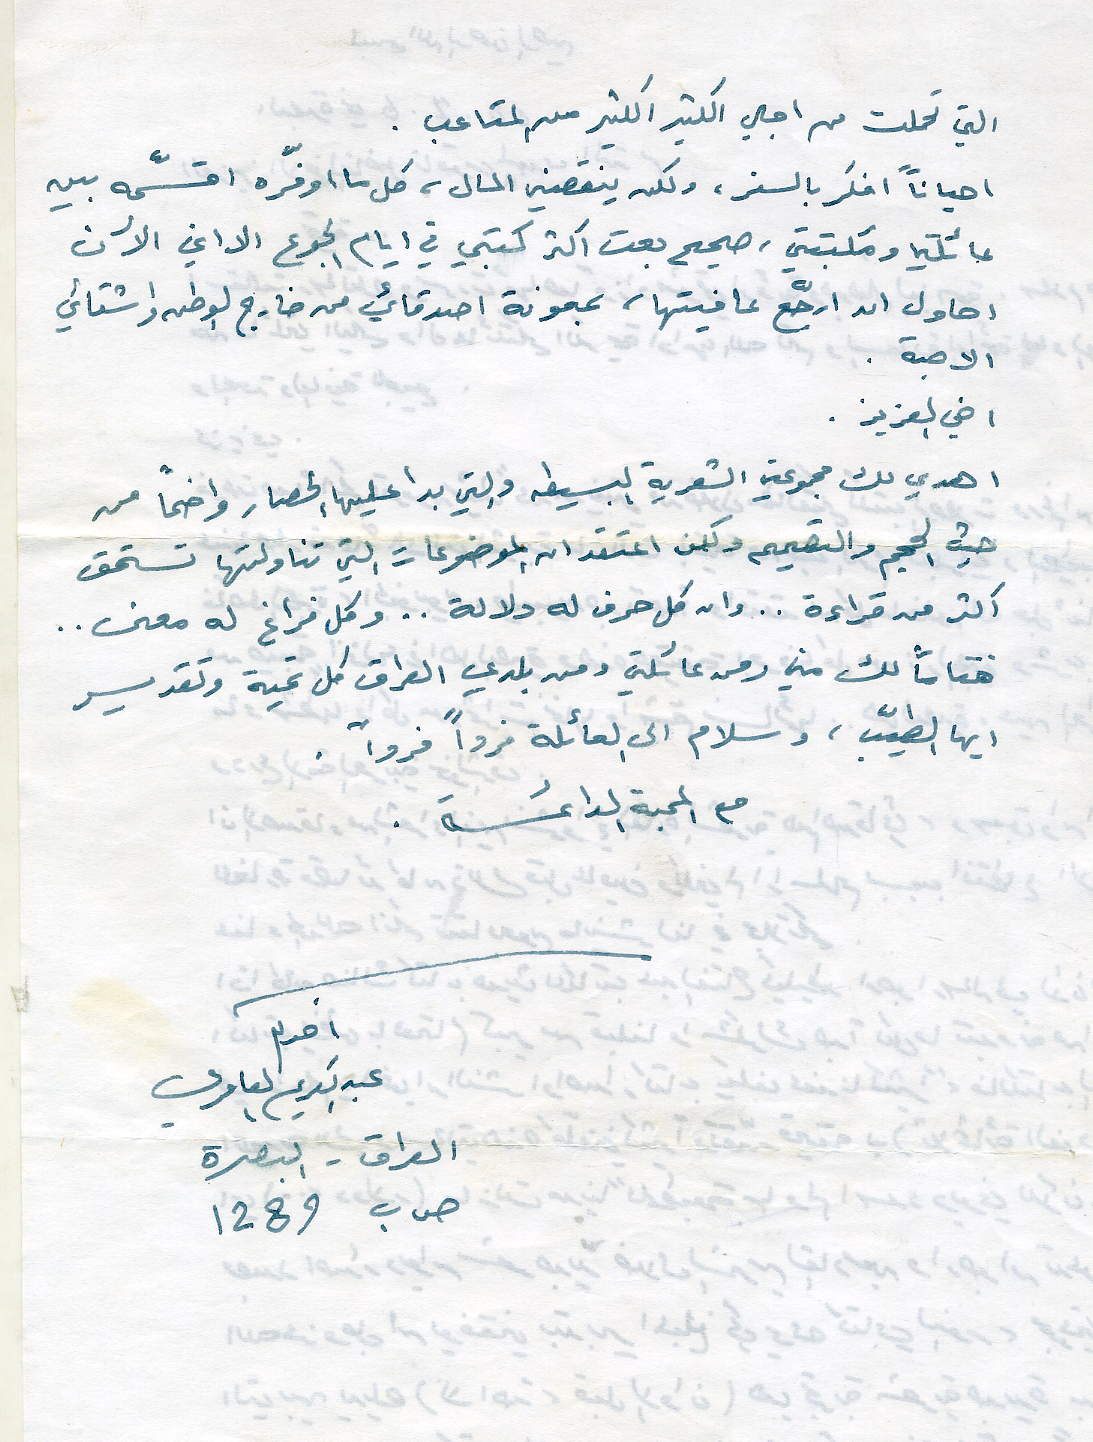 التي تحملت من اجلي الكثير الكثير من المتاعب .
احياناً افكر بالسفر ، ولكن ينقصني المال ، كل ما اوفّره اقسّمه بين
عائلتي ومكتبتي ، صحيح بعت اكثر كتبي في ايام الجوع الا اني الآن
احاول ان ارجّع عافيتها ، بمعونة اصدقائي من خارج الوطن واشقائي
الاحبة .
اخي العزيز .
اهدي لك مجموعتي الشعرية البسيطه والتي بدا عليها الحصار واضحاً من
حيث الحجم والتصميم ولكن اعتقد ان الموضوعات التي تناولتها تستحق
اكثر من قراءة .. وان كل حرف له دلالة .. وكل فراغ له معنى ..
ختاماً لك مني ومن عائلتي ومن بلدي العراق كل تحية وتقدير
ايها الطيّب ، وسلام الى العائلة فرداً فرداً .
مع المحبة الدائمة .
اخوكم
عبد الكريم العامري
العراق - البصرة
ص ب 1289